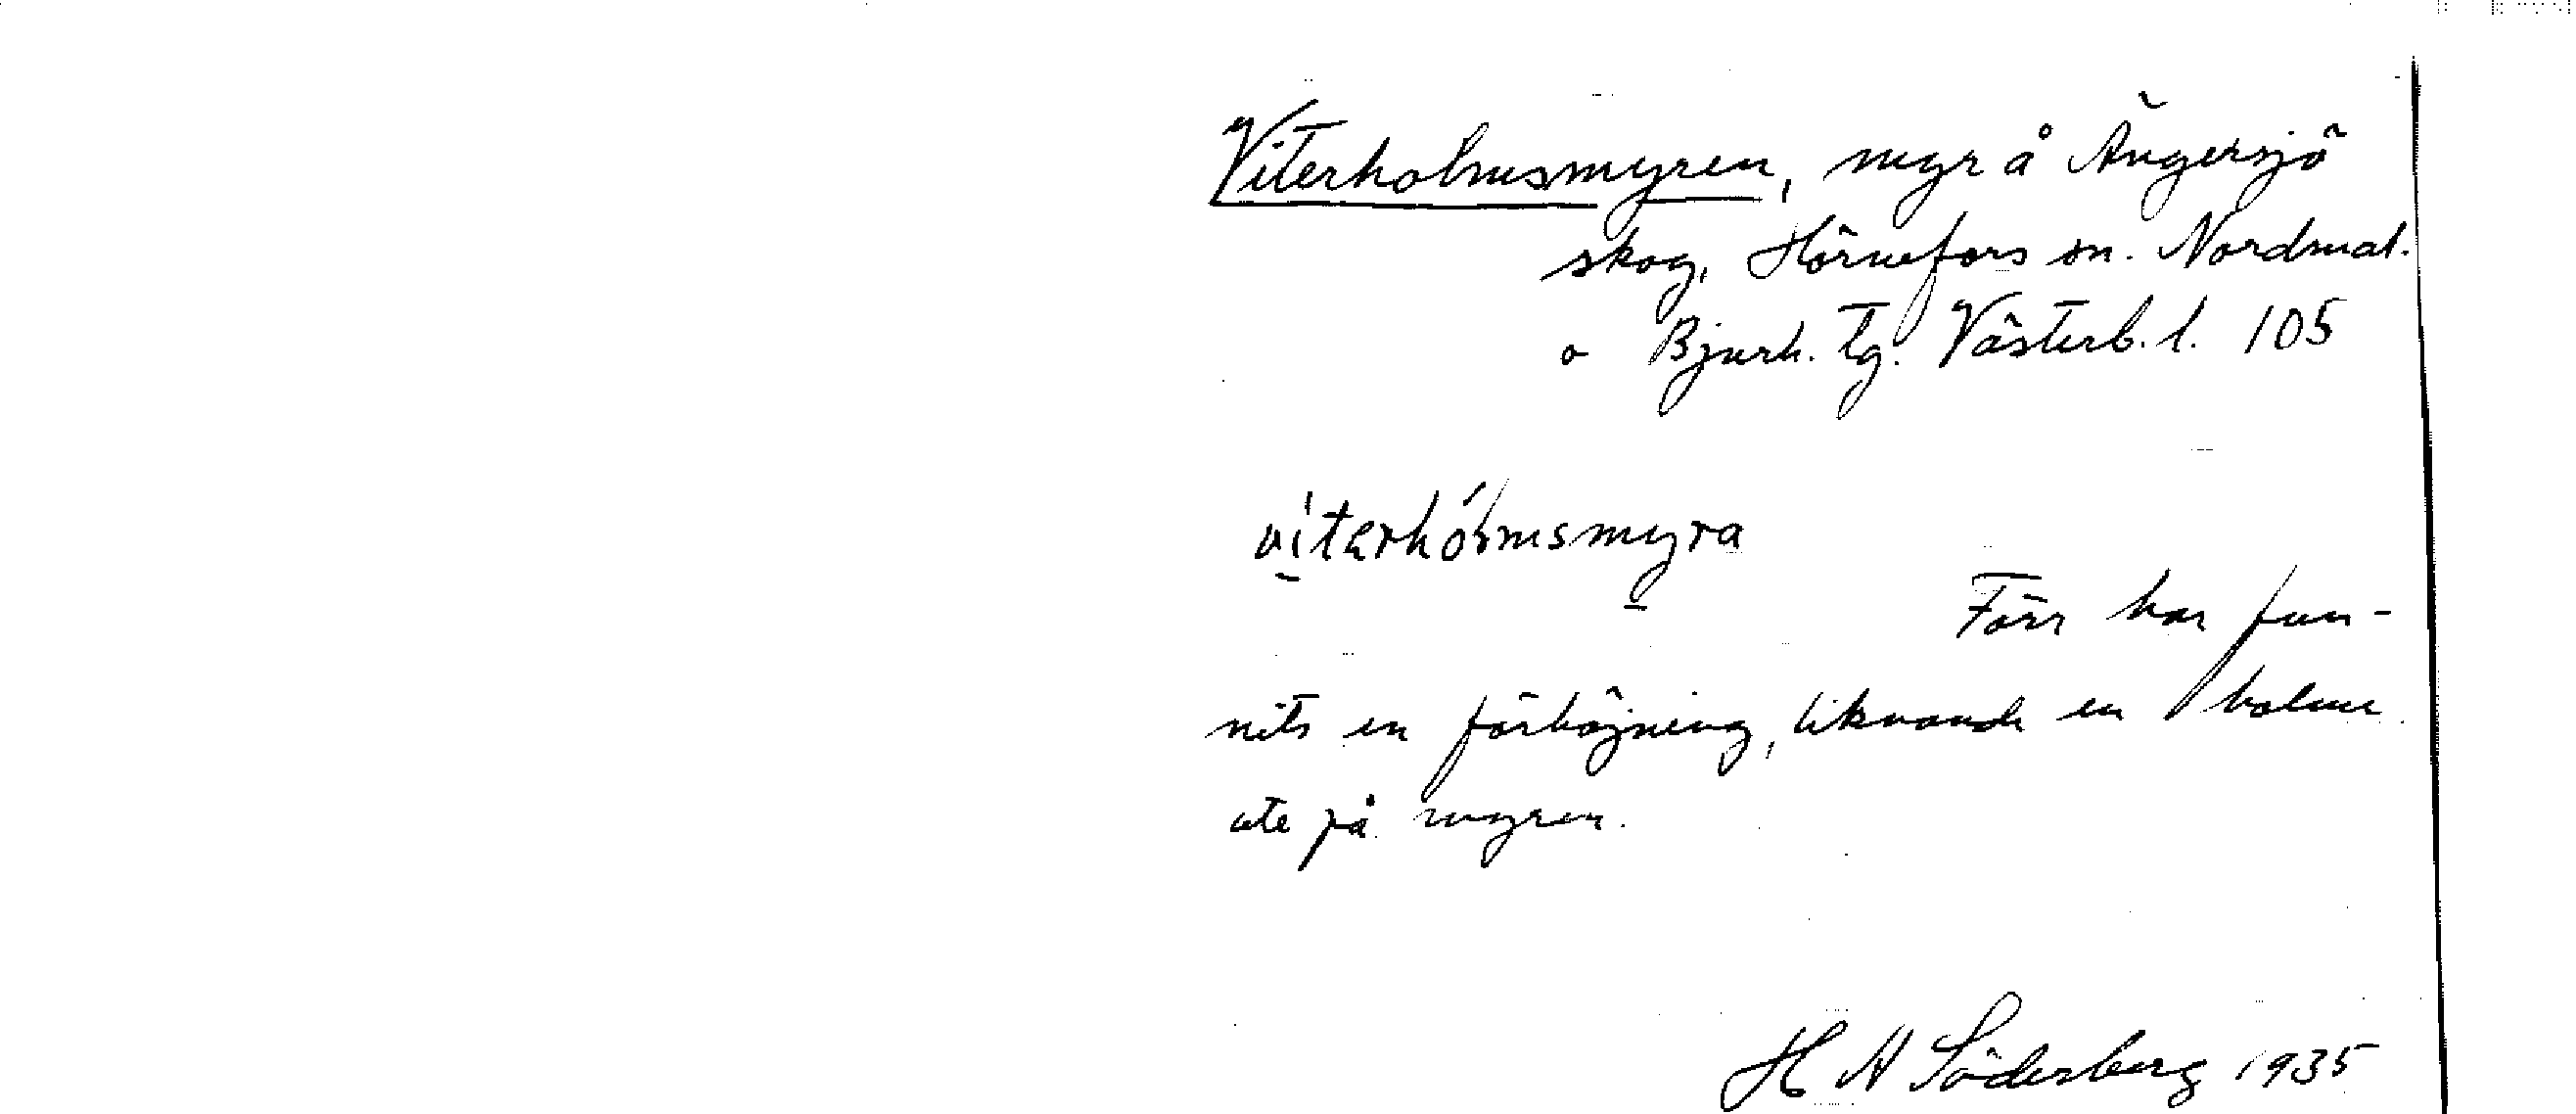 Viterholmsmyren, myr å Ängersjö
skog, Hörnefors sn. Nordmal.
o Bjurh. tg. Västerb. l. 105
viterhólmsmyra
Förr har fun-
nits en förhöjning, liknande en holme
ute på myren.
H A Söderberg 1935